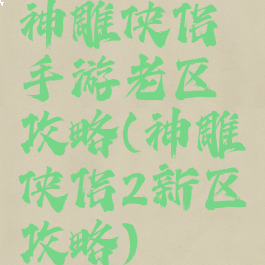 神雕侠侣
手游老区
攻略(神雕
侠侣2新区
攻略)